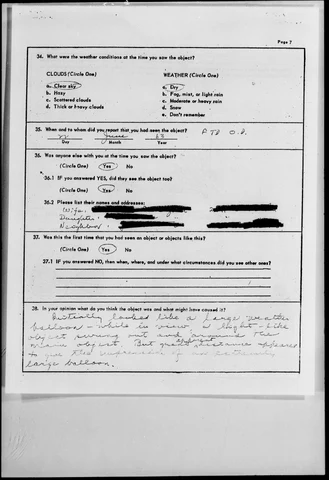 Page 7
34. What were the weather conditions at the time you saw the object?
CLOUDS (Circle One) WEATHER (Circle One)
a. Clear sky a. Dry
b. Hazy b. Fog, mist, or light rain
c. Scattered clouds c. Moderate or heavy rain
d. Thick or heavy clouds d. Snow
e. Don't remember
35. When and to whom did you report that you had seen the object?
22 June 63
Day Month Year
36. Was anyone else with you at the time you saw the object?
(Circle One) Yes No
36.1 If you answered YES, did they see the object too?
(Circle One) Yes No
36.2 Please list their names and addresses:
Wife
Daughter
Neighbor
37. Was this the first time that you had seen an object or objects like this?
(Circle One) Yes No
37.1 IF you answered NO, then when, where, and under what circumstances did you see other ones?
38. In your opinion what do you think the object was and what might have caused it?
Initially looked like a large weather
balloon - while in view a light-like
object swung out and around the
main object. But great distance appears
to give the impression of an extremely
large balloon.